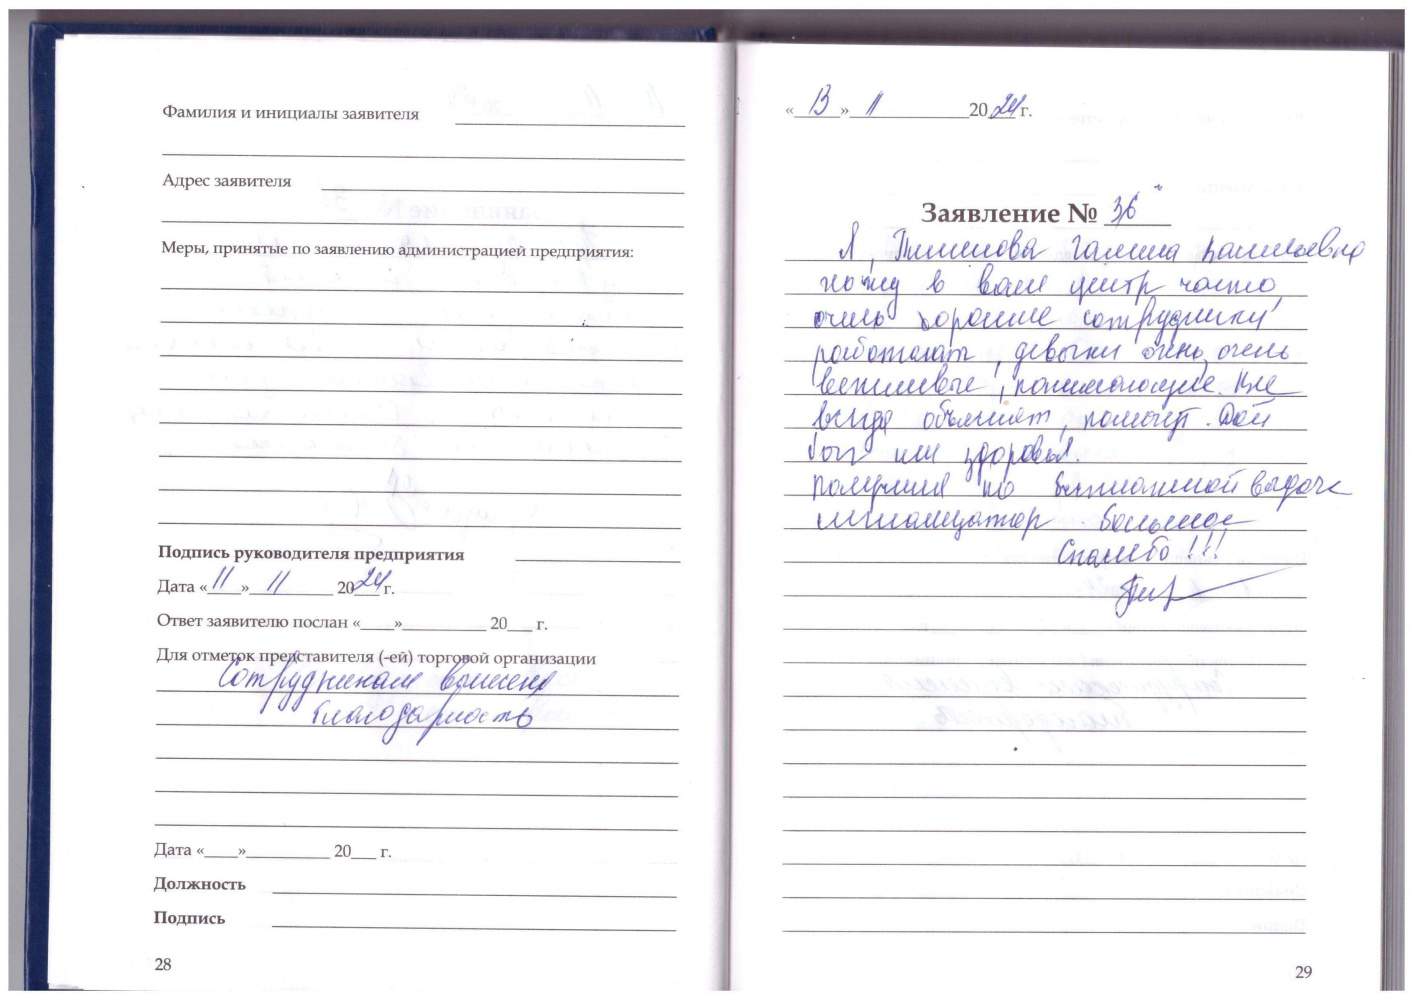 Фамилия и инициалы заявителя
Адрес заявителя
Меры, принятые по заявлению администрацией предприятия:
Подпись руководителя предприятия
Дата «11» 11 2024 г.
Ответ заявителю послан «____»__________ 20___ г.
Для отметок представителя (-ей) торговой организации
Сотрудникам
благодарность
Дата «____»__________ 20___ г.
Должность
Подпись
28
«13» 11 2024 г.
Заявление № 36
Я, Галина
хожу в ваш центр часто
очень хорошие сотрудники
работают, девочки очень, очень
вежливые, понимающие. Все
всегда объяснят, помогут. Дай
бог им здоровья.
получила по бесплатной выдаче
Большое
Спасибо!!!
29